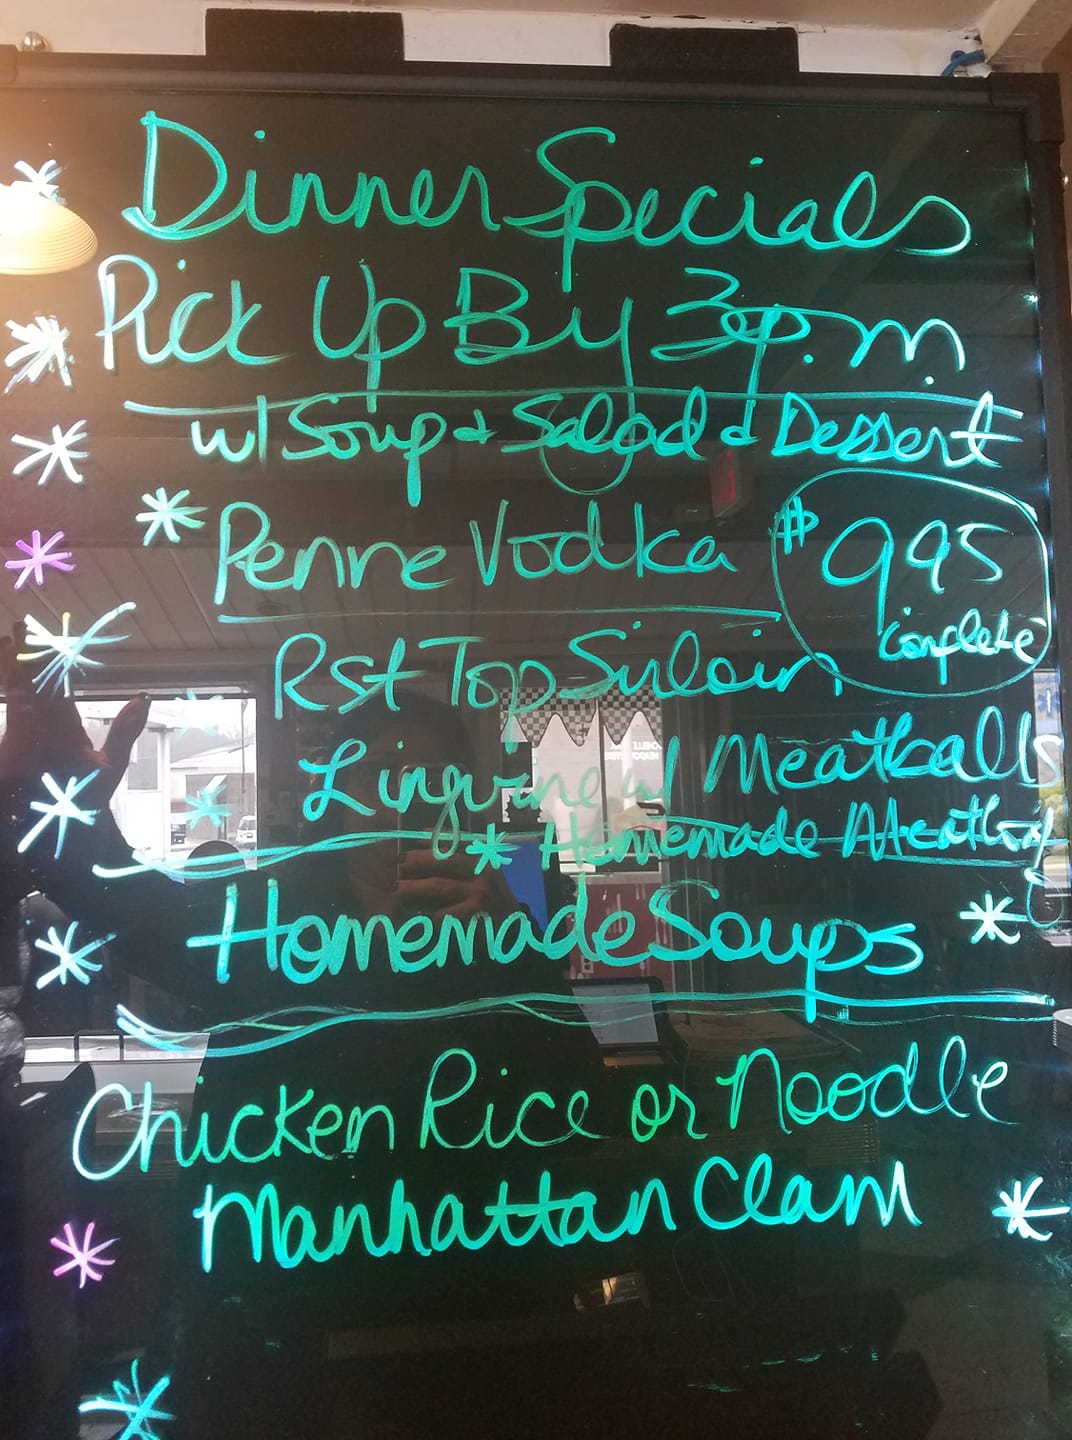 Dinner Specials
Pick Up By 3 p.m.
w/ Soup & Salad & Dessert
* Penne Vodka
$9 95
complete
Rst Top Sirloin
Linguine w/ Meatballs
* Homemade Meatloaf
Homemade Soups
Chicken Rice or Noodle
Manhattan Clam